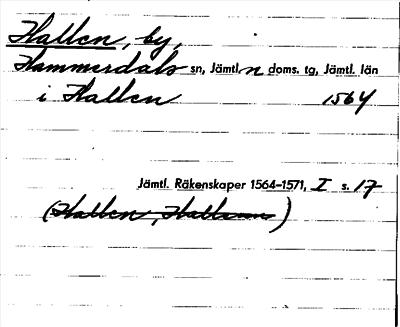 Hallen, by,
Hammerdals sn, Jämtl. n doms. tg, Jämtl. län
i Hallen 1564
Jämtl. Räkenskaper 1564–1571, I s. 17
(Hallen, Hallænn)